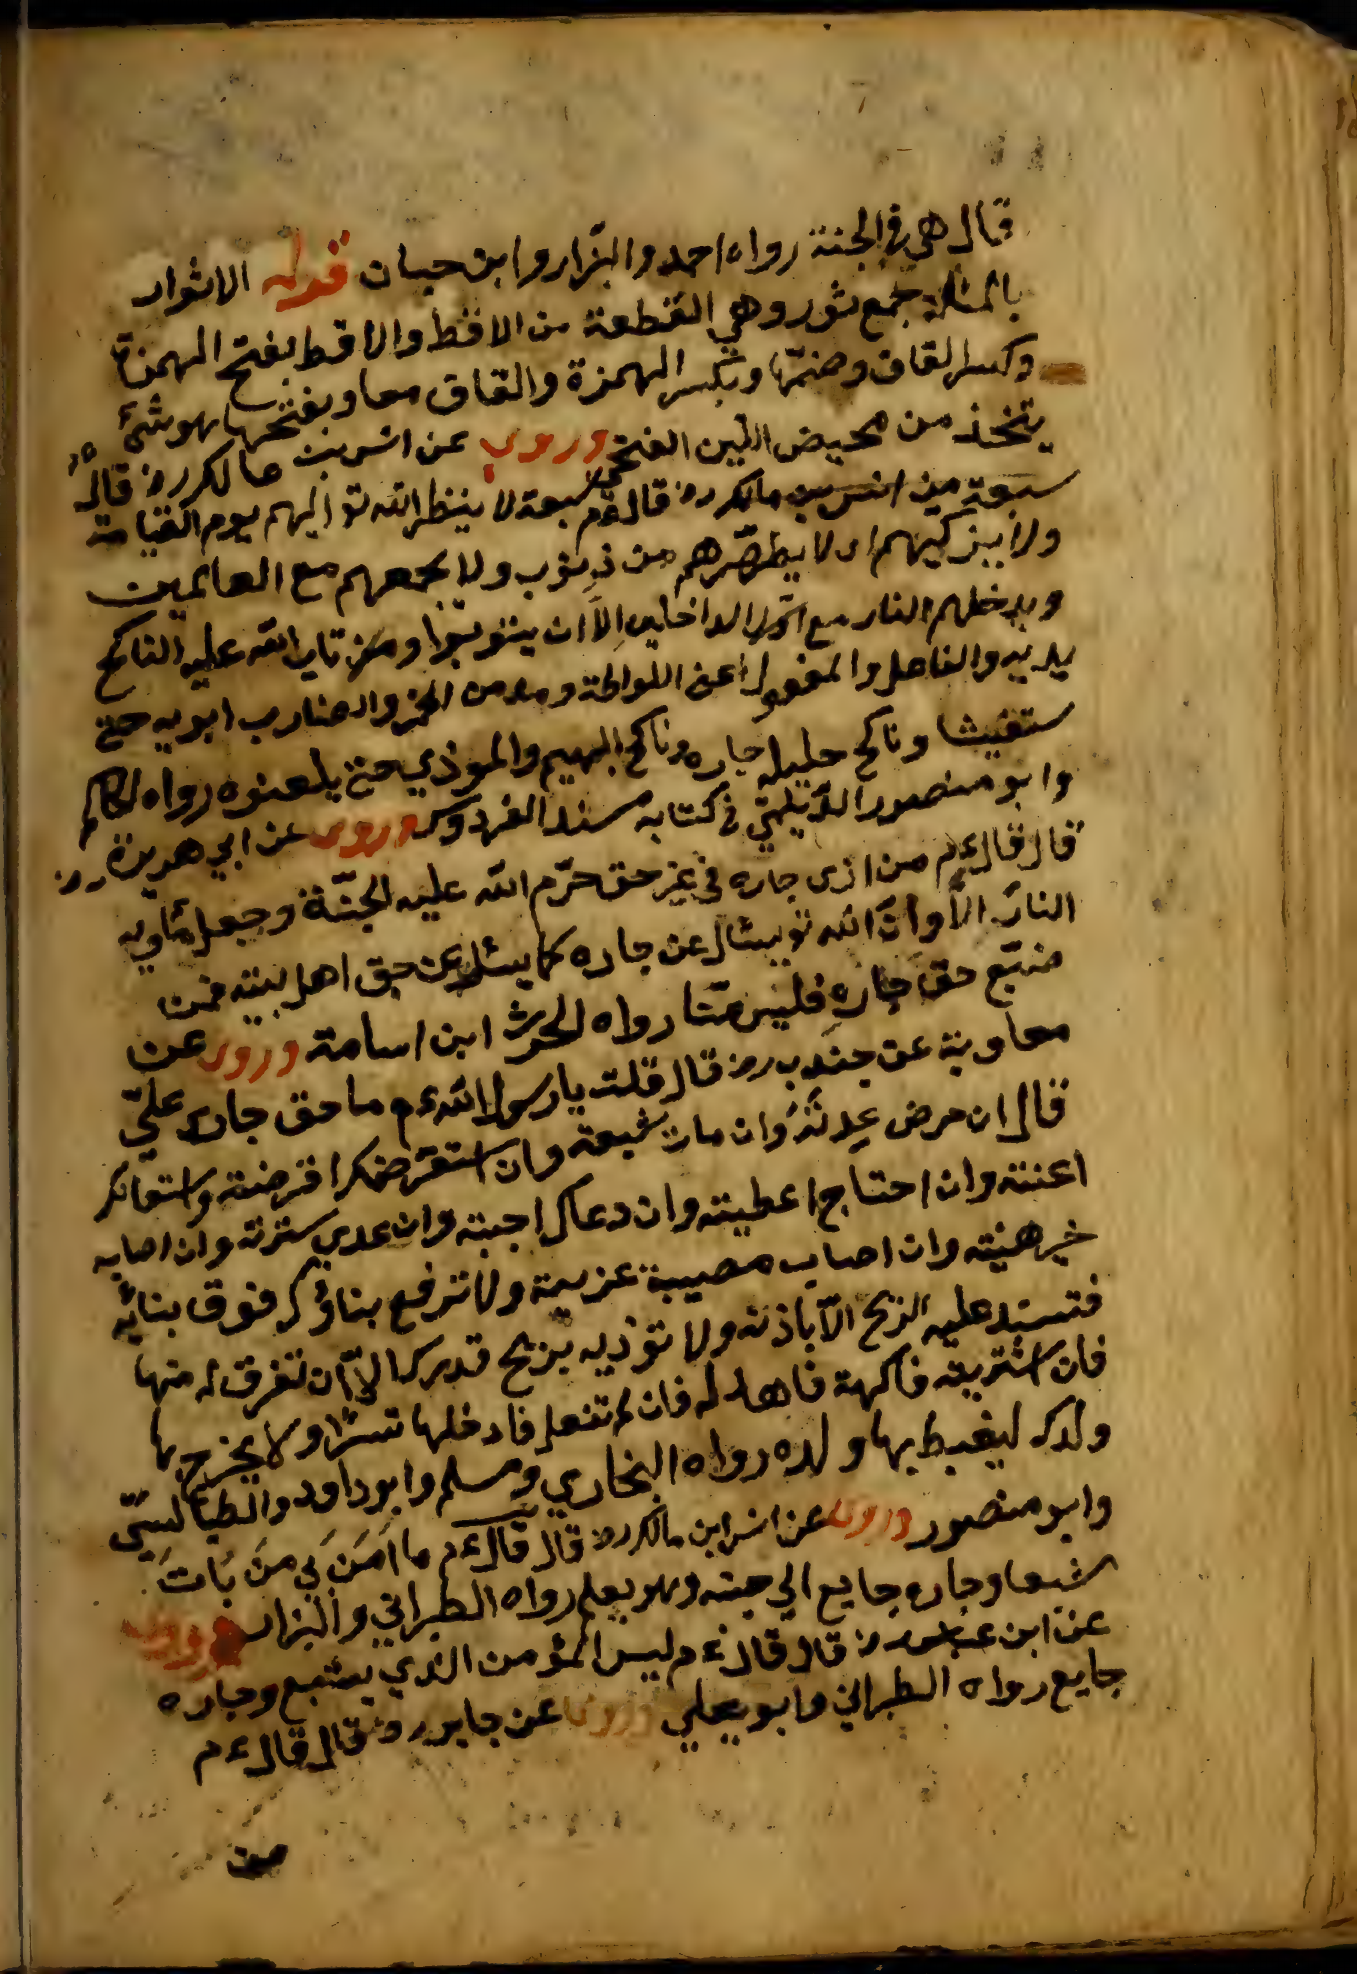 قال هي في الجنة رواه احمد والبزّار وابن حبان قوله الاثوار
بالمثلثة جمع ثور وهي القطعة من الاقط والاقط بفتح الهمزة
وكسر القاف وضمّها وبكسر الهمزة والقاف معا وبفتحها هو شئ
يتخذ من محيض اللبن الغنمي وروى عن انس بن مالك رض قال
سبعة من انس بن مالك رض قال ءم سبعة لا ينظر الله تع اليهم يوم القيامة
ولا يزكيهم اى لا يطهّرهم من ذنوب ولا يجمعهم مع العالمين
ويدخلهم النار مع اوّل الداخلين الّا ان يتوبوا ومن تاب الله عليه الناكح
يديه والفاعل والمفعول اعني اللواطة ومدمن الخمر والضارب ابويه حتى
ستغيثا وناكح حليلة جاره وناكح البهيم والموذي حتى يلعنوه رواه الحاكم
وابو منصور الدّيلميّ في كتابه مسند الفردوس وروى عن ابي هريرة رض
قال قال ءم من اذى جاره في غير حق حرّم الله عليه الجنّة وجعل مأويه
النار الا وانّ الله تع يسئال عن جاره كما يسئل عن حق اهل بيته فمن
ضيّع حقّ جاره فليس منّا رواه الحرث ابن اسامة وروى عن
معاوية عن جندب رض قال قلت يا رسول الله ءم ما حق جارى عليّ
قال ان مرض عدتَهُ وان مات شيعته وان استقرضك اقرضته واستعانك
اعنته وان احتاج اعطيته وان دعاك اجبته وان عدي سترته وان اصابه
خير هنيته وان اصاب مصيبة عزيمة ولا ترفع بناؤك فوق بنائه
فتسند عليه الريح الّا باذنه ولا توذيه بريح قدرك الّا ان تغرق له منها
فان اشتريت فاكهة فاهد له فان لم تفعل فادخلها سرّا ولا يخرج بها
ولدك ليغبط بها ولده رواه البخاري ومسلم وابو داود والطيالسيّ
وابو منصور وروى عن انس ابن مالك رض قال قال ءم ما اَمَنَ بي مَنَ بَاتَ
شبعا وجاره جايع الي جنبه وهو يعلم رواه الطبراني والبزار وروى
عن ابن عباس رض قال قال ءم ليس المؤمن الذي يشبع وجاره
جايع رواه الطبراني وابو يعلي وروى عن جابر رض قال قال ءم
من